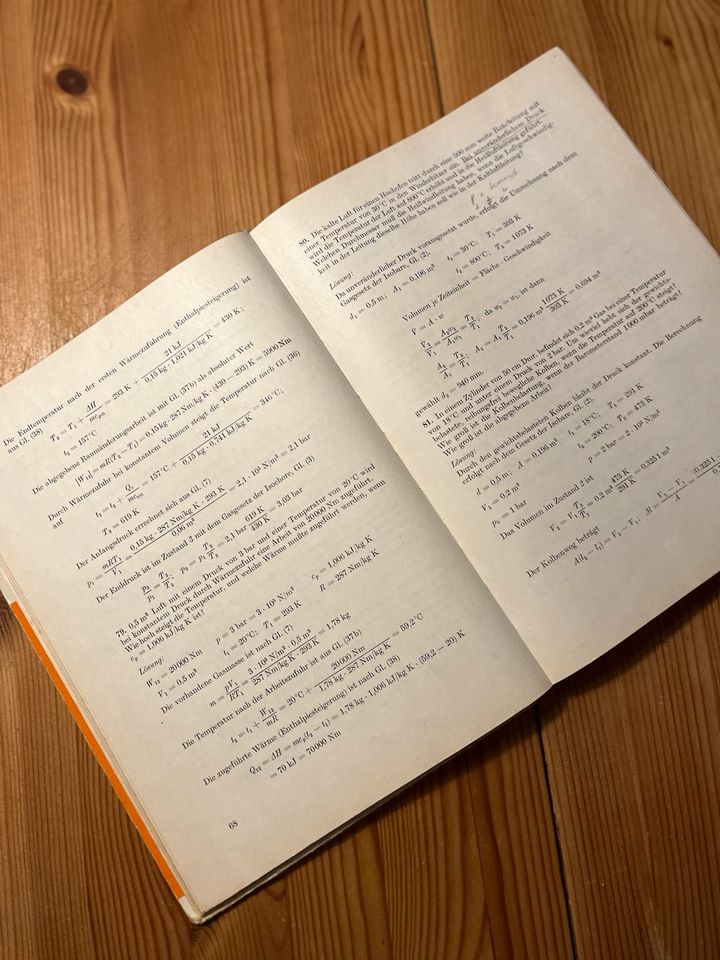 Die Endtemperatur nach der ersten Wärmezuführung (Enthalpiesteigerung) ist
aus Gl. (38)
T₂ = T₁ + ΔH / mcₚₘ = 293 K + 21 kJ / 0,15 kg · 1,021 kJ/kg K = 430 K;
t₂ = 157 °C
Die abgegebene Raumänderungsarbeit ist mit Gl. (37b) als absoluter Wert
|W₁₂| = mR(T₂ − T₁) = 0,15 kg · 287 Nm/kg K · (430 − 293) K = 5900 Nm
Durch Wärmezufuhr bei konstantem Volumen steigt die Temperatur nach Gl. (36)
auf
t₃ = t₂ + Qᵥ / mcᵥₘ = 157 °C + 21 kJ / 0,15 kg · 0,741 kJ/kg K = 346 °C;
T₃ = 619 K
Der Anfangsdruck errechnet sich aus Gl. (7)
p₁ = mRT₁ / V₁ = 0,15 kg · 287 Nm/kg K · 293 K / 0,06 m³ = 2,1 · 10⁵ N/m² = 2,1 bar
Der Enddruck ist im Zustand 3 mit dem Gasgesetz der Isochore, Gl. (3)
p₃ / p₁ = T₃ / T₂; p₃ = p₁ T₃ / T₂ = 2,1 bar 619 K / 430 K = 3,03 bar
79. 0,5 m³ Luft mit einem Druck von 3 bar und einer Temperatur von 20 °C wird
bei konstantem Druck durch Wärmezufuhr eine Arbeit von 20000 Nm zugeführt.
Wie hoch steigt die Temperatur, und welche Wärme mußte zugeführt werden, wenn
cₚ = 1,006 kJ/kg K ist?
Lösung:
W₁₂ = 20000 Nm p = 3 bar = 3 · 10⁵ N/m² cₚ = 1,006 kJ/kg K
V₁ = 0,5 m³ t₁ = 20 °C; T₁ = 293 K R = 287 Nm/kg K
Die vorhandene Gasmasse ist nach Gl. (7)
m = pV₁ / RT₁ = 3 · 10⁵ N/m² · 0,5 m³ / 287 Nm/kg K · 293 K = 1,78 kg
Die Temperatur nach der Arbeitszufuhr ist aus Gl. (37b)
t₂ = t₁ + W₁₂ / mR = 20 °C + 20000 Nm / 1,78 kg · 287 Nm/kg K = 59,2 °C
Die zugeführte Wärme (Enthalpiesteigerung) ist nach Gl. (38)
Q₁₂ = ΔH = mcₚ(t₂ − t₁) = 1,78 kg · 1,006 kJ/kg K · (59,2 − 20) K
= 70 kJ = 70000 Nm
68
80. Die kalte Luft für einen Hochofen tritt durch eine 500 mm weite Rohrleitung mit
einer Temperatur von 30 °C in den Winderhitzer ein. Bei unveränderlichem Druck
wird die Temperatur der Luft auf 800 °C erhöht und in die Heißluftleitung geführt.
Welchen Durchmesser muß die Heißwindleitung haben, wenn die Luftgeschwindig-
keit in der Leitung dieselbe Höhe haben soll wie in der Kaltluftleitung?
Lösung:
Da unveränderlicher Druck vorausgesetzt wurde, erfolgt die Umrechnung nach dem
Gasgesetz der Isobare, Gl. (2).
d₁ = 0,5 m; A₁ = 0,196 m² t₁ = 30 °C; T₁ = 303 K
t₂ = 800 °C; T₂ = 1073 K
Volumen je Zeiteinheit = Fläche · Geschwindigkeit
V̇ = A · w
V̇₂ / V̇₁ = A₂w₂ / A₁w₁ = T₂ / T₁; da w₂ = w₁, ist dann
A₂ / A₁ = T₂ / T₁; A₂ = A₁ T₂ / T₁ = 0,196 m² 1073 K / 303 K = 0,694 m²
gewählt d₂ = 940 mm.
81. In einem Zylinder von 50 cm Dmr. befindet sich 0,2 m³ Gas bei einer Temperatur
von 18 °C und unter einem Druck von 2 bar. Um wieviel hebt sich der gewichts-
belastete, reibungsfrei bewegliche Kolben, wenn die Temperatur auf 200 °C steigt?
Wie groß ist die Kolbenbelastung, wenn der Barometerstand 1000 mbar beträgt?
Wie groß ist die abgegebene Arbeit?
Lösung:
Durch den gewichtsbelasteten Kolben bleibt der Druck konstant. Die Berechnung
erfolgt nach dem Gesetz der Isobare, Gl. (2).
d = 0,5 m; A = 0,196 m² t₁ = 18 °C; T₁ = 291 K
V₁ = 0,2 m³ t₂ = 200 °C; T₂ = 473 K
p₀ = 1 bar p = 2 bar = 2 · 10⁵ N/m²
Das Volumen im Zustand 2 ist
V₂ = V₁ T₂ / T₁ = 0,2 m³ 473 K / 291 K = 0,3251 m³
Der Kolbenweg beträgt